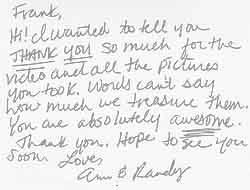 Frank,
Hi! I wanted to tell you
THANK YOU so much for the
video and all the pictures
you took. Words can't say
how much we treasure them.
You are absolutely awesome.
Thank you. Hope to see you
soon. Love,
Ann & Randy